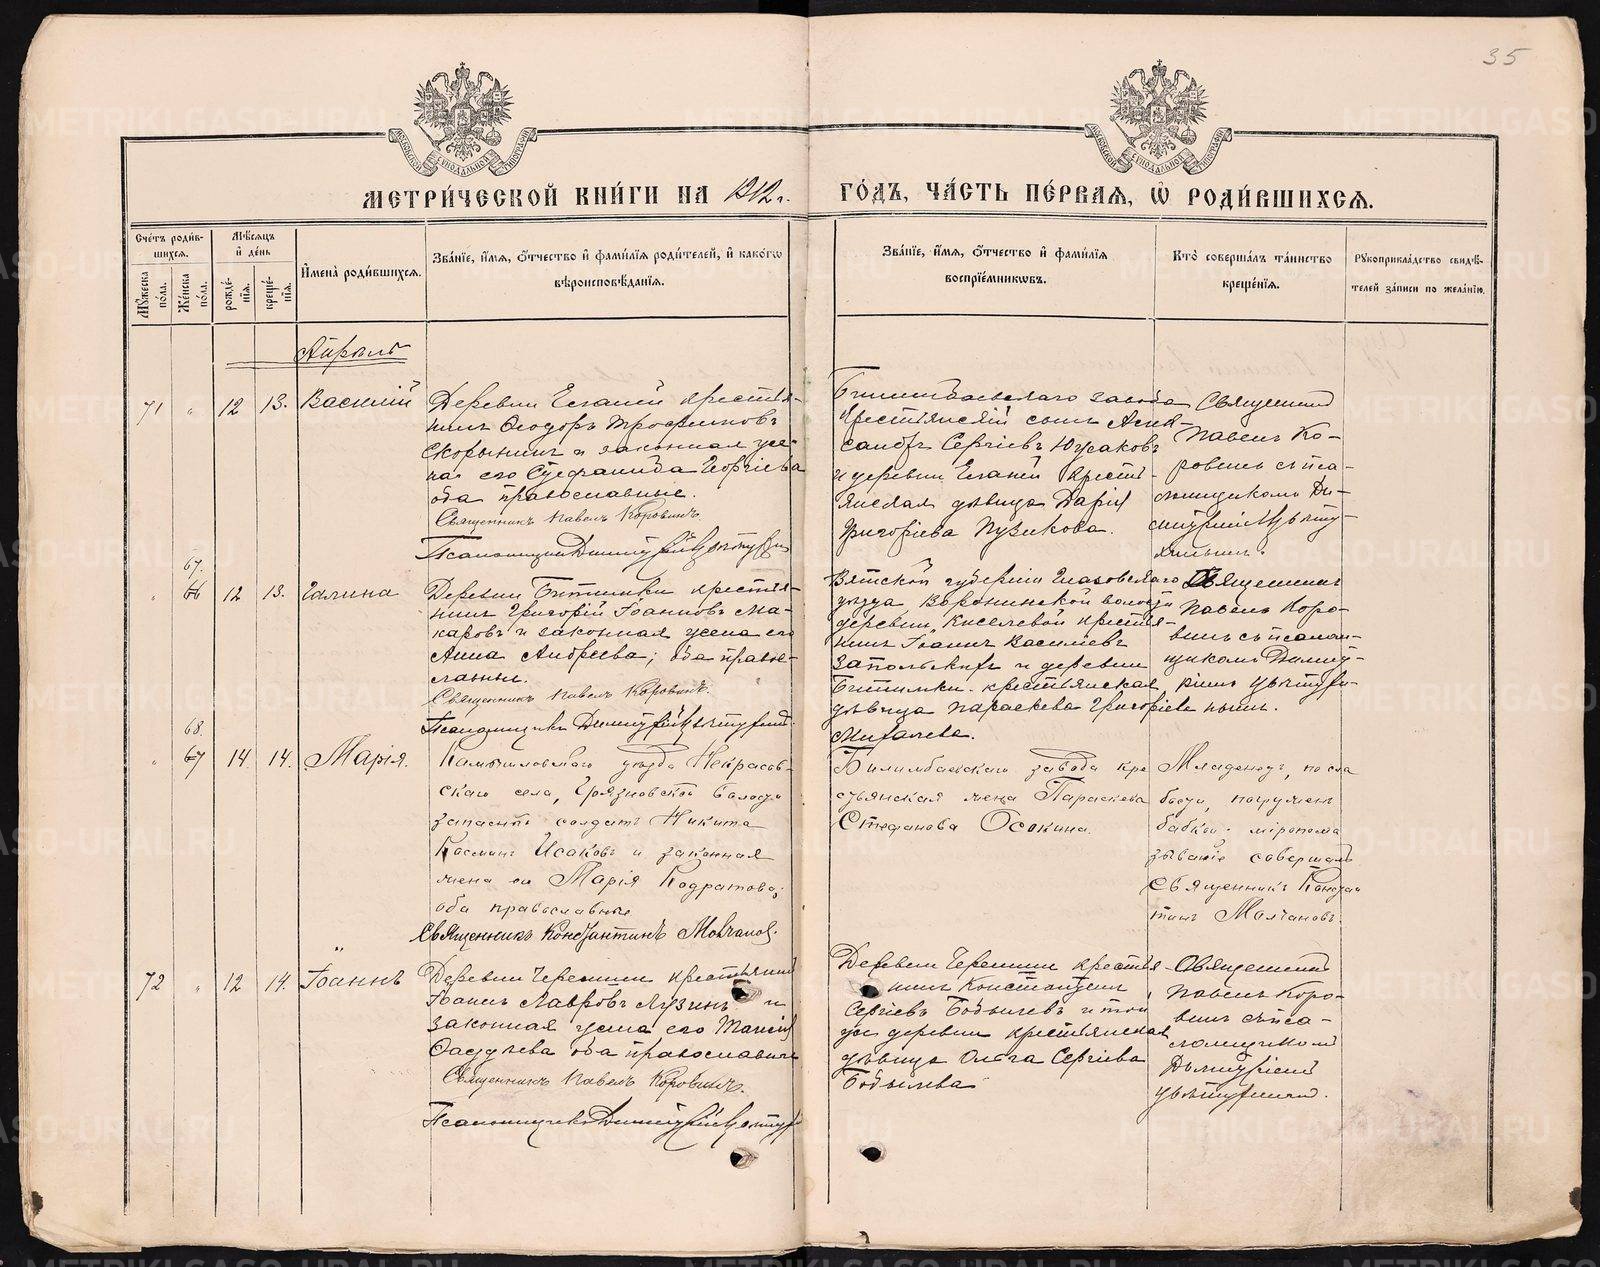 35
МЕТРИ́ЧЕСКОЙ КНИ́ГИ НА 1912 г. ГО́ДЪ, ЧА́СТЬ ПЕ́РВАЯ, Ѽ РОДИ́ВШИХСЯ.
Сче́тъ роди́в-
шихся.
Мꙋ́жеска по́ла.
Же́нска по́ла.
Мѣ́сяцъ
и҆ де́нь
рожде́нїя.
креще́нїя.
И҆мена̀ роди́вшихся.
Зва́нїе, и҆́мя, ѻ҆́тчество и҆ фами́лїя роди́телей, и҆ како́гѡ
вѣроисповѣ́данїя.
Зва́нїе, и҆́мя, ѻ҆́тчество и҆ фами́лїя
воспрїе́мникѡвъ.
Кто̀ соверша́лъ та́инство
креще́нїя.
Рꙋкоприкла́дство свидѣ́-
телей за́писи по жела́нїю.
Апрѣль
71 " 12 13. Василій
Деревни Еланей крестья-
нинъ Ѳеодоръ Трофимовъ
Скорынинъ и законная же-
на его Стефанида Георгіева
оба православные.
Священникъ Павелъ Коровинъ
Псаломщикъ Димитрій
Билимбаевскаго завода
крестьянскій сынъ Алек-
сандръ Сергіевъ Юсаковъ
и деревни Еланей кресть-
янская дѣвица Дарія
Григоріева Пузикова.
Священникъ
Павелъ Ко-
ровинъ съ пса-
ломщикомъ Ди-
митріемъ
67.
" 66 12 13. Галина
Деревни Битимки крестья-
нинъ Григорій Іоанновъ Ма-
каровъ и законная жена его
Анна Андреева; оба правос-
лавны.
Священникъ Павелъ Коровинъ.
Псаломщикъ Димитрій
Вятской губерніи Глазовскаго
уѣзда Воронинской волости
деревни Киселевой крестья-
нинъ Іоаннъ Василіевъ
и деревни
Битимки крестьянская
дѣвица Параскева Григоріева
Михалева.
Священникъ
Павелъ Коро-
винъ съ псалом-
щикомъ Димит-
ріемъ
68.
" 67 14. 14. Марія.
Камышловскаго уѣзда Некрасов-
скаго села, Грязновской волости
запасный солдатъ Никита
Косминъ Исаковъ и законная
жена его Марія Кодратова;
оба православные
Священникъ Константинъ Молчановъ.
Билимбаевскаго завода кре
стьянская жена Параскева
Стефанова Осокина.
Младенецъ, по сла
бости, погруженъ
бабкой. мѵропома
зываніе совершалъ
Священникъ Констан
тинъ Молчановъ.
"
72 " 12 14. Іоаннъ
Деревни Черемши крестьянинъ
Іоаннъ Лавровъ Лузинъ и
законная жена его Таисія
Ѳаддѣева оба православные
Священникъ Павелъ Коровинъ.
Псаломщикъ Димитрій
Деревни Черемши крестья
нинъ Константинъ
Сергіевъ Бобылевъ и той
же деревни крестьянская
дѣвица Ольга Сергіева
Бобылева
Священникъ
Павелъ Коро-
винъ съ пса-
ломщикомъ
Димитріемъ
METRIKI.GASO-URAL.RU